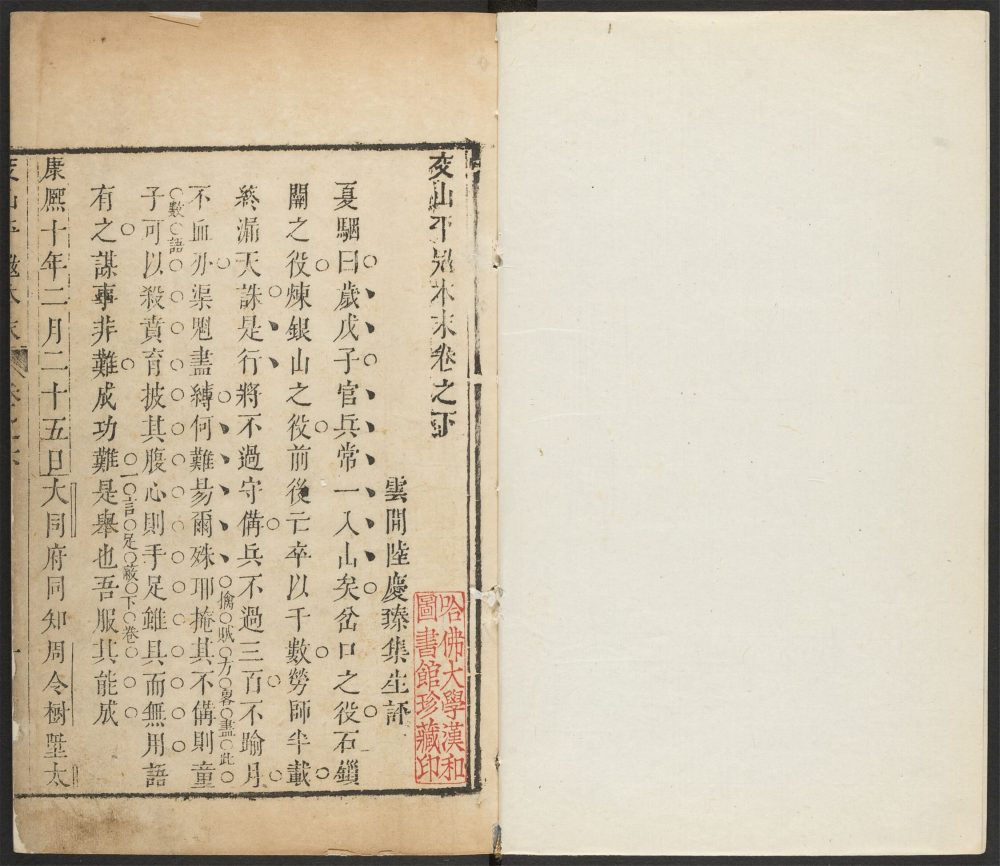 交山平寇本末卷之下
雲間陸慶臻集生評
夏駰曰歲戊子官兵常一入山矣岔口之役石鎖
關之役煉銀山之役前後亡卒以千數勞師半載
終漏天誅是行將不過守備兵不過三百不踰月
擒賊方畧盡此
不血刃渠魁盡縛何難易爾殊耶掩其不備則童
數語
子可以殺賁育披其腹心則手足雖具而無用語
有之謀事非難成功難是舉也吾服其能成
一言足蔽下卷
康熙十年二月二十五日大同府同知周令樹墾太
哈佛大學漢和
圖書館珍藏印